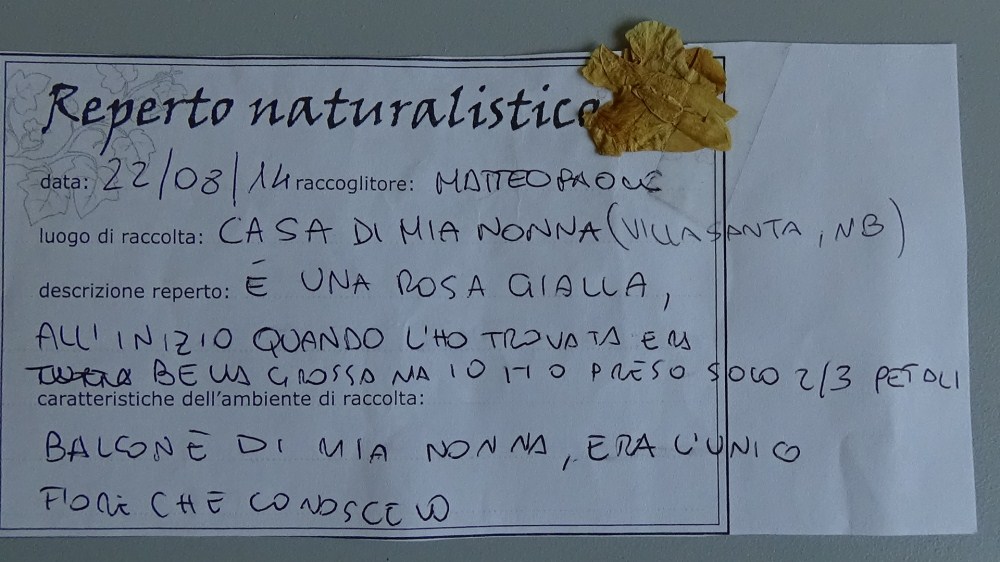 Reperto naturalistico
data: 22/08/14 raccoglitore: MATTEO PAONE
luogo di raccolta: CASA DI MIA NONNA (VILLASANTA, MB)
descrizione reperto: È UNA ROSA GIALLA,
ALL'INIZIO QUANDO L'HO TROVATA ERA
BELLA GROSSA MA IO HO PRESO SOLO 2/3 PETALI
caratteristiche dell'ambiente di raccolta:
BALCONE DI MIA NONNA, ERA L'UNICO
FIORE CHE CONOSCEVO